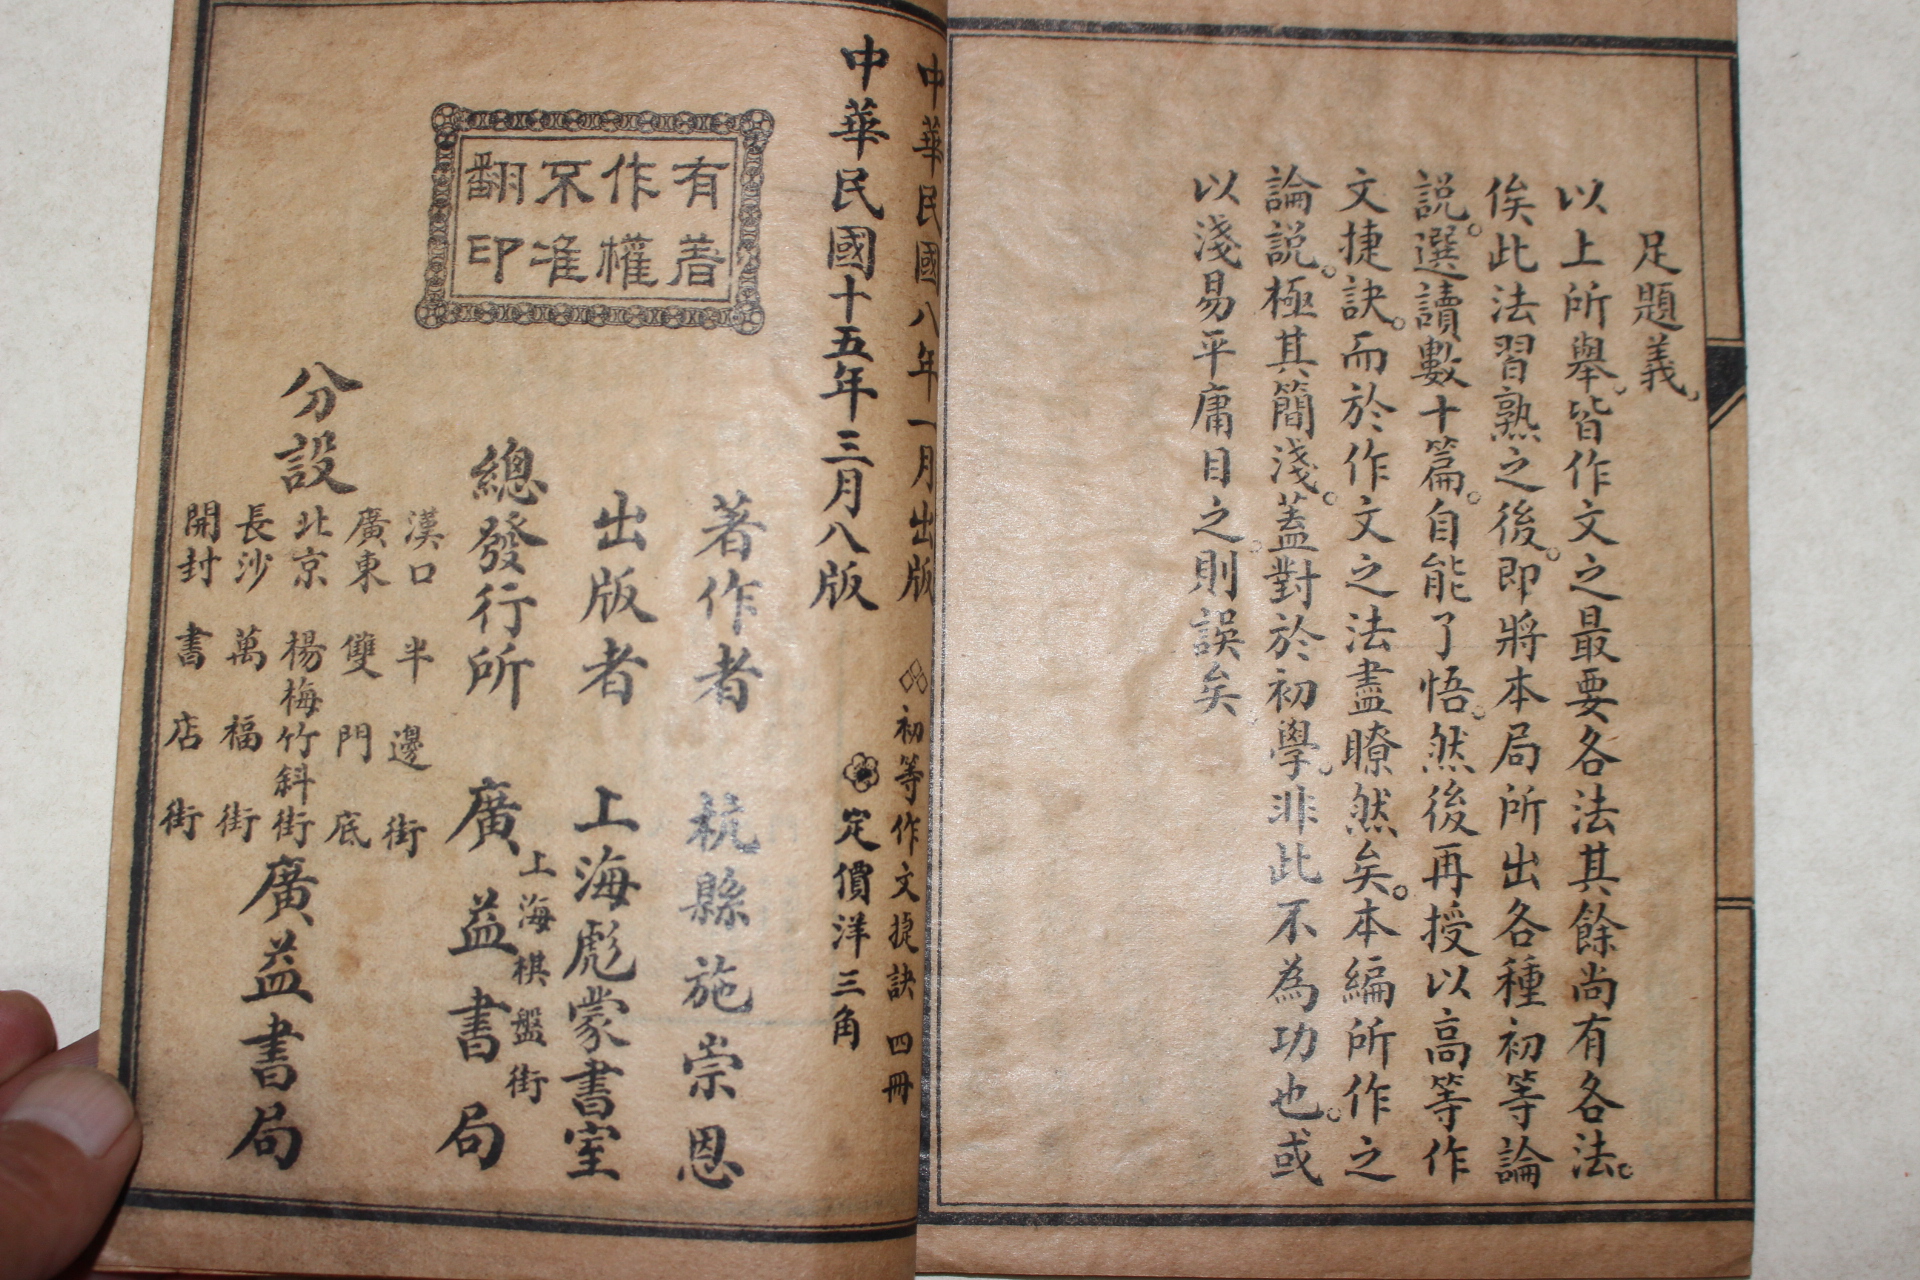 足題義。
以上所舉。皆作文之最要各法其餘尚有各法。
俟此法習熟之後。即將本局所出各種初等論
説。選讀數十篇。自能了悟。然後再授以高等作
文捷訣。而於作文之法盡瞭然矣。本編所作之
論説。極其簡淺。蓋對於初學。非此不為功也。或
以淺易平庸目之。則誤矣。
中華民國八年一月出版 初等作文捷訣 四冊
中華民國十五年三月八版 定價洋三角
有著
作權
不准
翻印
著作者 杭縣施崇恩
出版者 上海彪蒙書室
總發行所 上海棋盤街 廣益書局
分設
漢口 半邊街
廣東 雙門底
北京 楊梅竹斜街
長沙 萬福街
開封 書店街
廣益書局